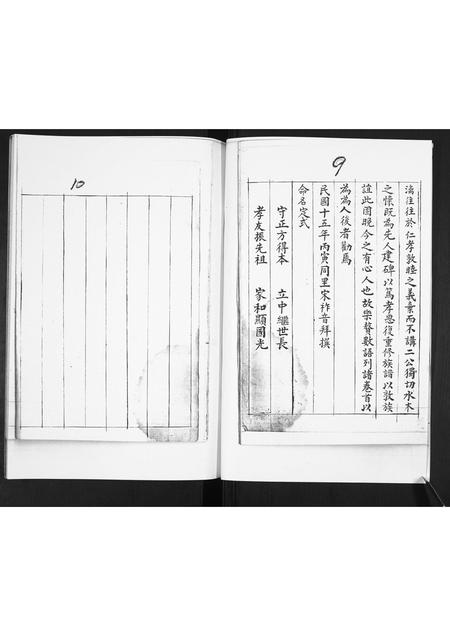 9
漓往往於仁孝敦睦之義棄而不講二公獨切水木
之懷既為先人建碑以篤孝思復重修族譜以敦族
誼此固晚今之有心人也故樂贅數語列譜卷首以
為為人後者勸焉
民國十五年丙寅同里宋祚音拜撰
命名定式
守正方得本 立中繼世長
孝友振先祖 家和顯國光
10